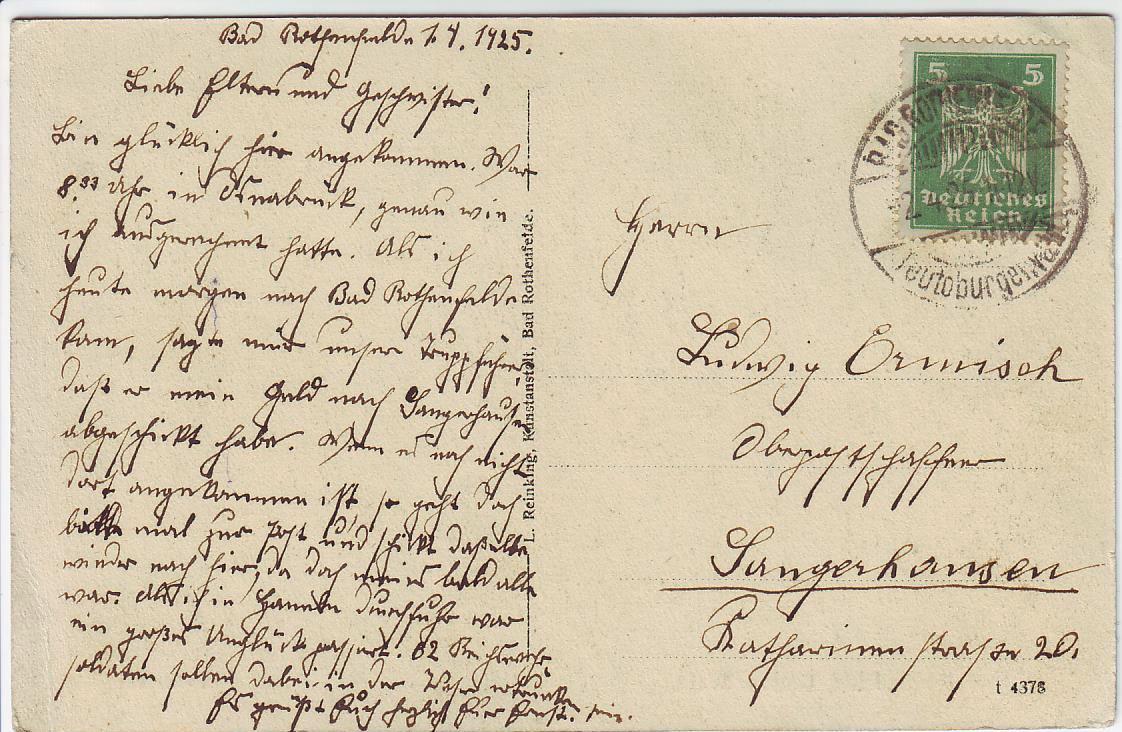 Bad Rothenfelde 1.4.1925.
Liebe Eltern und Geschwister!
Bin glücklich hier angekommen. War
8.33 Uhr in Osnabrück, genau wie
ich ausgerechnet hatte. Als ich
heute morgen nach Bad Rothenfelde
kam, sagte mir unser Truppführer,
daß er mein Geld nach Sangerhausen
abgeschickt habe. Wenn es noch nicht
dort angekommen ist so geht doch
bitte mal zur Post und schickt daßelbe
wieder nach hier, da doch meines bald alle
war. Als ich in Hameln durchfuhr war
ein großes Unglück passiert. 82 Reichswehr
soldaten sollen dabei in der Weser ertrunken
Es grüßt Euch herzlich Euer Ernst.
L. Reinking, Kunstanstalt, Bad Rothenfelde.
5 5
Deutsches
Reich
BAD ROTHENFELDE
Teutoburger Wald
Herrn
Ludwig Ormisch
Oberpostschaffner
Sangerhausen
Katharinenstraße 20.
t 4376